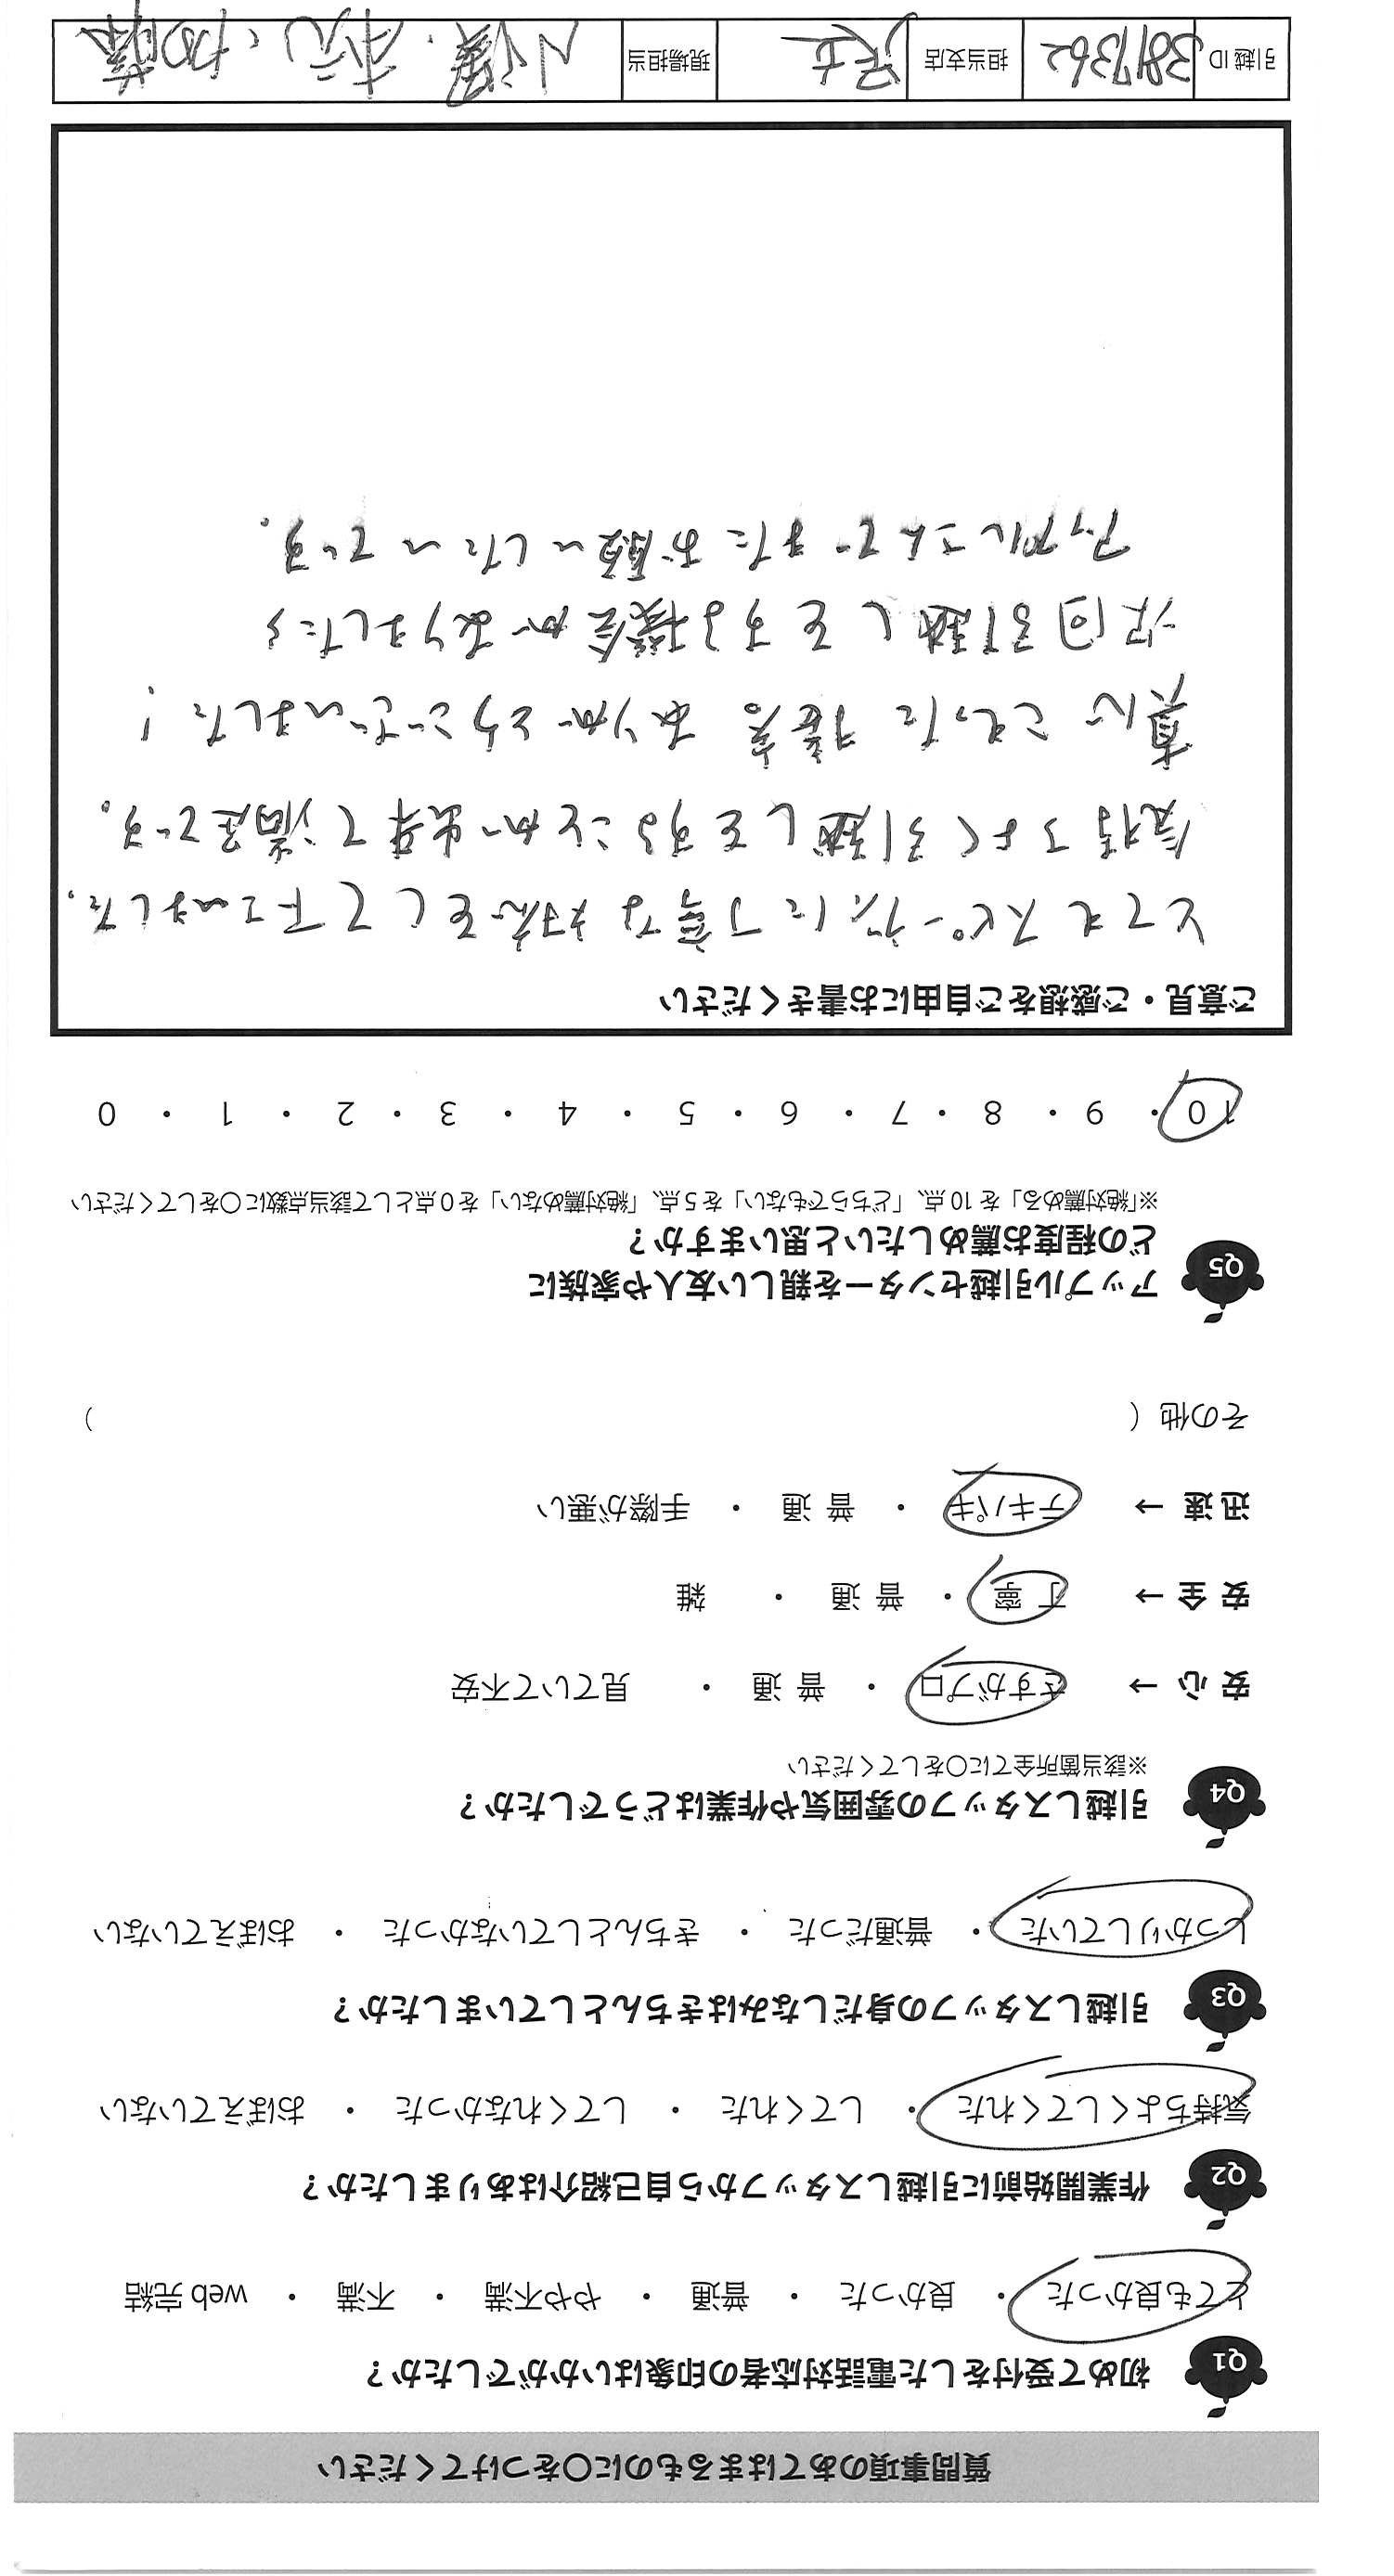 質問事項のあてはまるものに〇をつけてください
Q1 初めて受付をした電話対応者の印象はいかがでしたか？
とても良かった ・ 良かった ・ 普通 ・ やや不満 ・ 不満 ・ web 完結
Q2 作業開始前に引越しスタッフから自己紹介はありましたか？
気持ちよくしてくれた ・ してくれた ・ してくれなかった ・ おぼえていない
Q3 引越しスタッフの身だしなみはきちんとしていましたか？
しっかりしていた ・ 普通だった ・ きちんとしていなかった ・ おぼえていない
Q4 引越しスタッフの雰囲気や作業はどうでしたか？
※該当箇所全てに〇をしてください
安 心 → さすがプロ ・ 普 通 ・ 見ていて不安
安 全 → 丁 寧 ・ 普 通 ・ 雑
迅 速 → テキパキ ・ 普 通 ・ 手際が悪い
その他（ ）
Q5 アップル引越センターを親しい友人や家族に
どの程度お薦めしたいと思いますか？
※「絶対薦める」を 10 点、「どちらでもない」を 5 点、「絶対薦めない」を 0 点として該当点数に〇をしてください
10 ・ 9 ・ 8 ・ 7 ・ 6 ・ 5 ・ 4 ・ 3 ・ 2 ・ 1 ・ 0
ご意見・ご感想をご自由にお書きください
とてもスピーディに丁寧な対応をして下さいました。
気持ちよく引越しをすることが出来て満足です。
真心こもった接客 ありがとうございました！
次回引越しをする機会がありましたら
アップルさんでまたお願いしたいです。
引越 ID 3817362 担当支店 現場担当